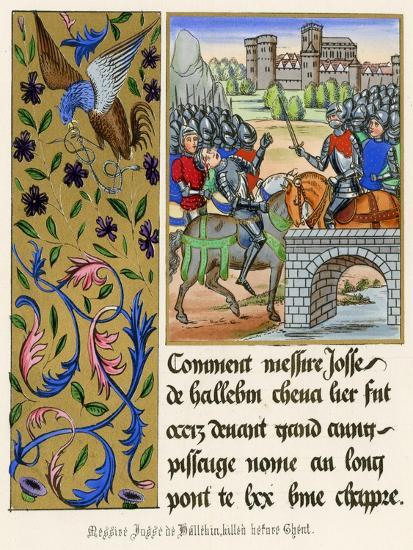 Comment messire Josse
de hallebin cheua lier fut
occiz deuant gand aung
pissauge nome au long
pont te lxx bme chappre.
Messire Josse de Hallebin, killed before Ghent.